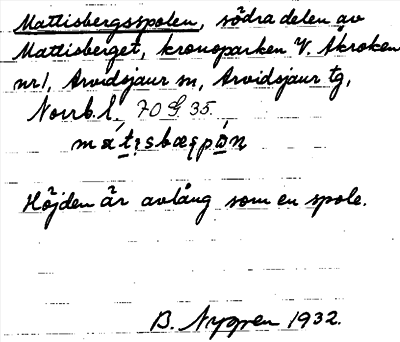 Mattisbergsspolen, södra delen av
Mattisberget, kronoparken V. Åkroken
nr 1, Arvidsjaur sn, Arvidsjaur tg,
Norrb. l. 70 G 35.
Höjden är avlång som en spole.
B. Nygren 1932.